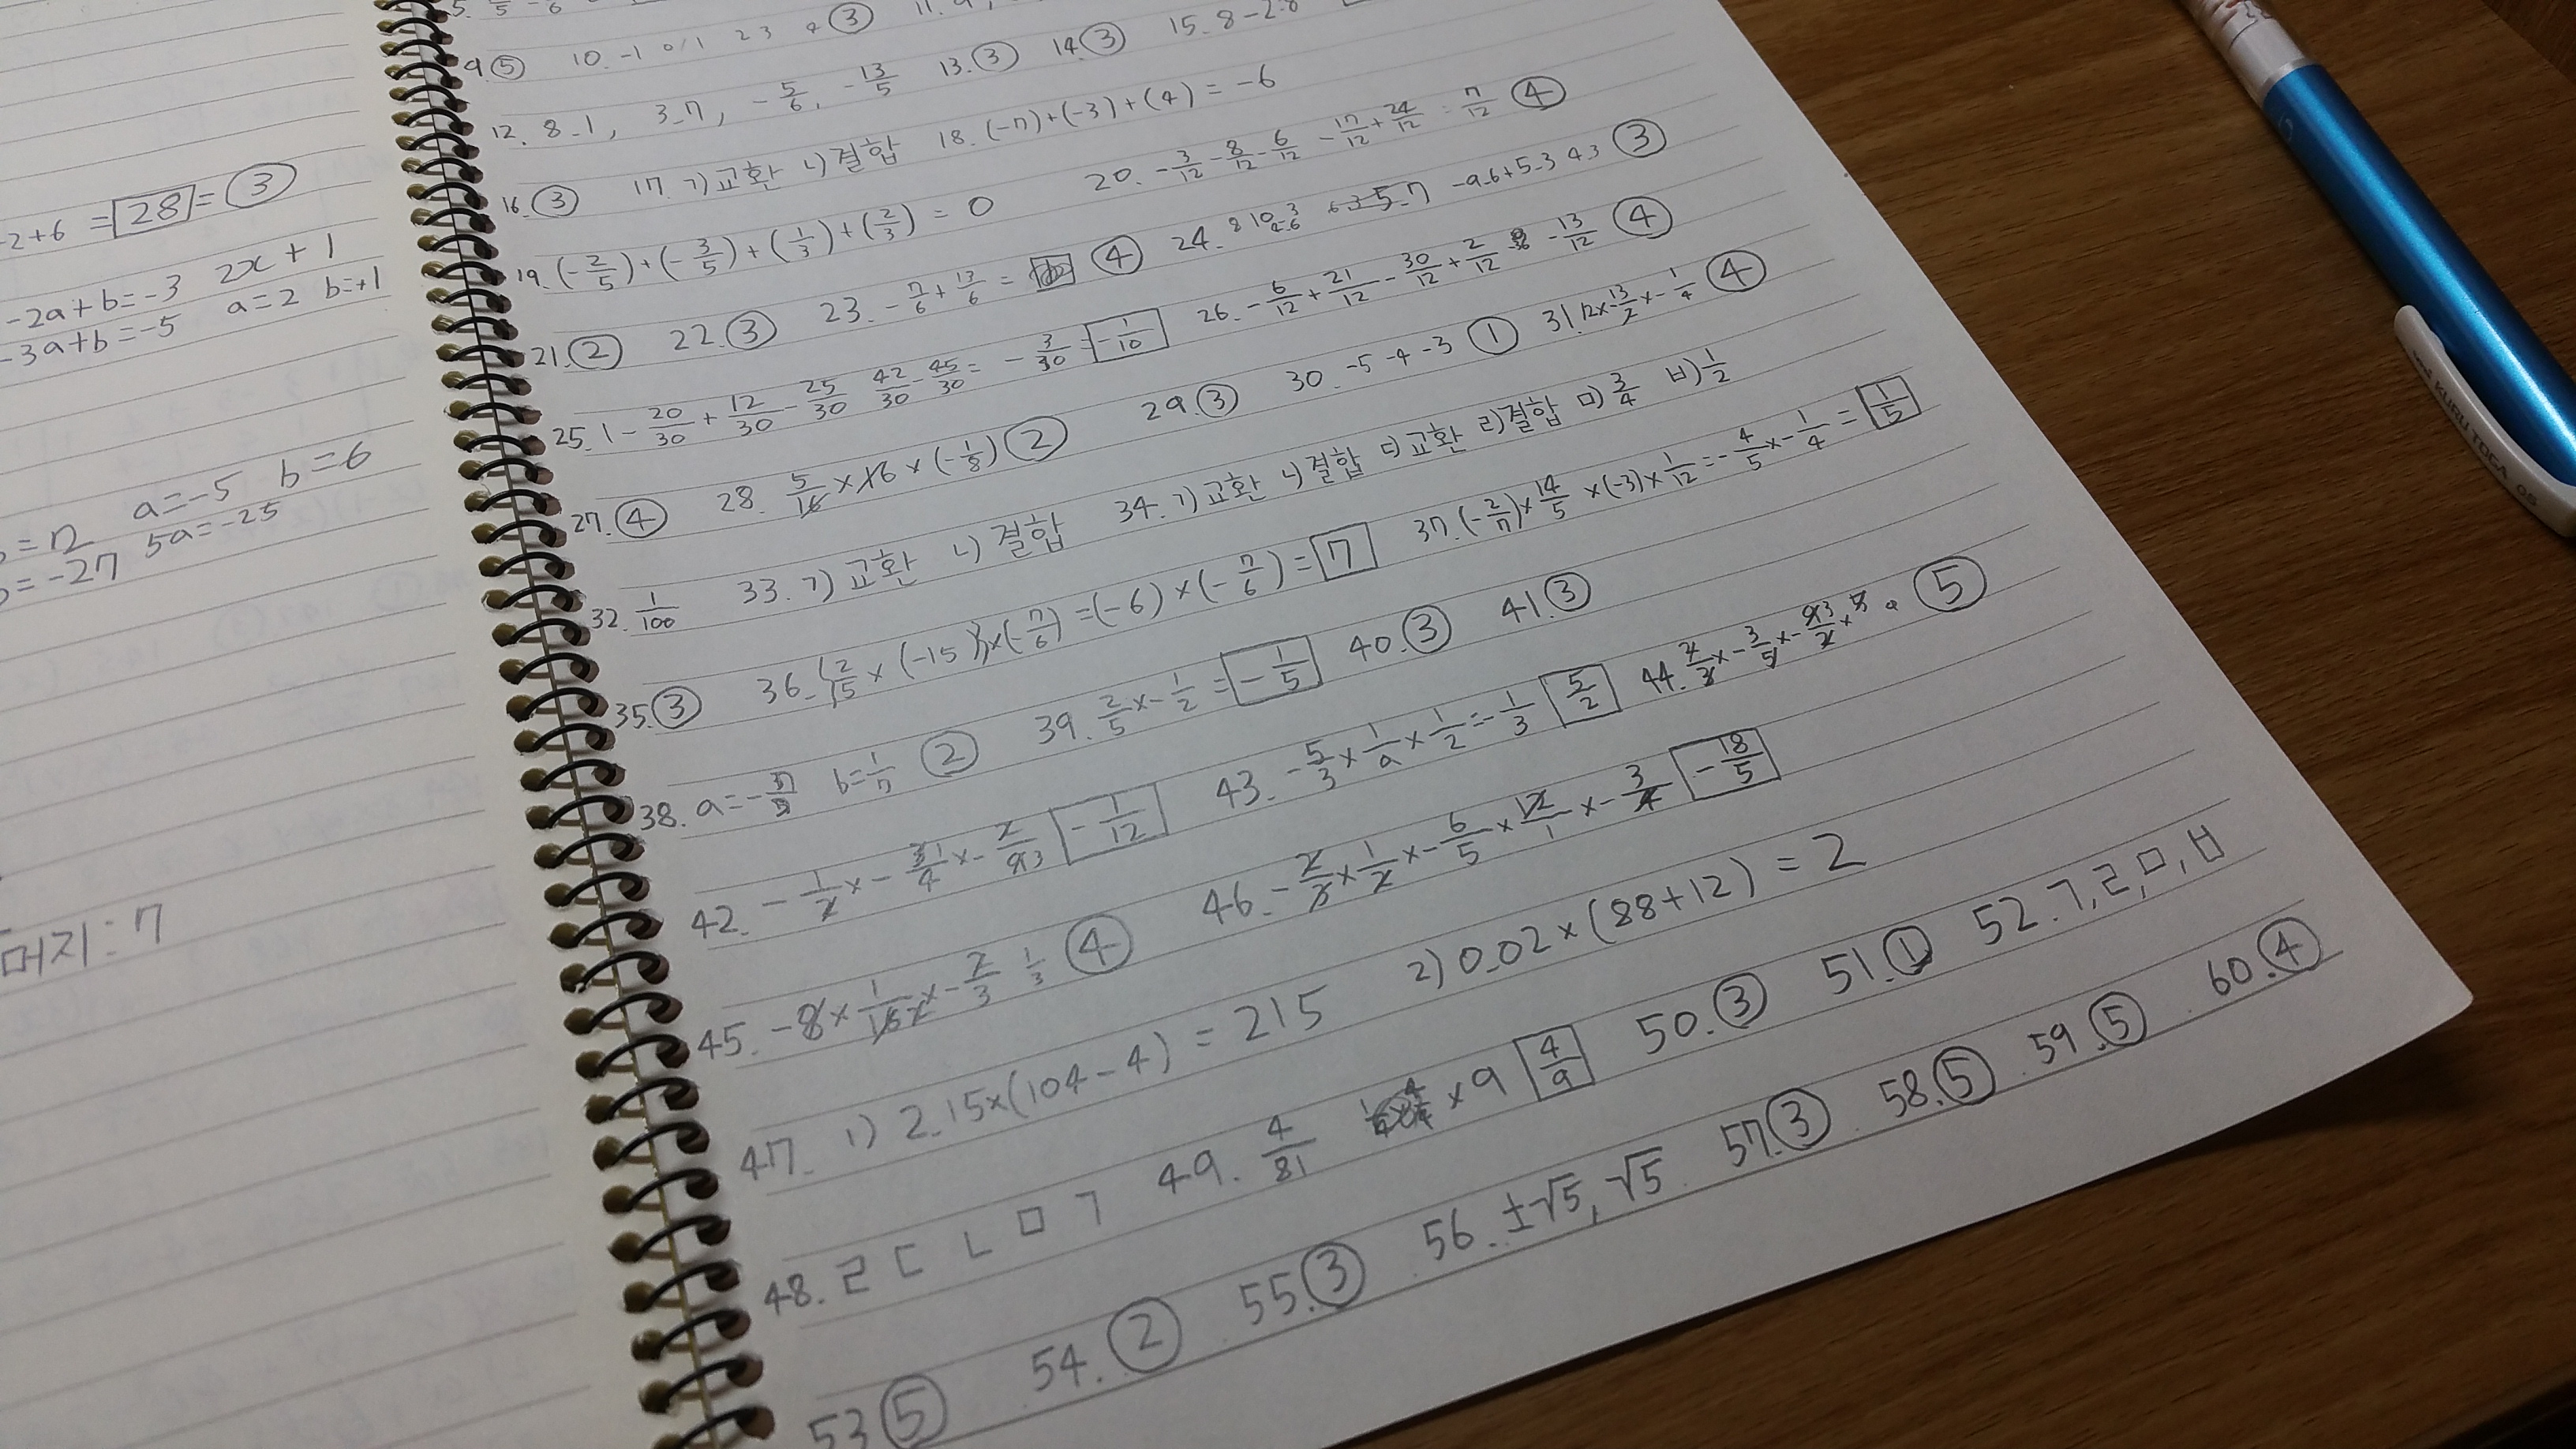 -2+6 = 28 = ③
-2a+b=-3 2x+1
-3a+b=-5 a=2 b=+1
a=-5 b=6
=-27 5a=-25
머지: 7
9. ⑤ 10. -1 0 1 2 3 4 ③
12. 8.1, 3.7, -5/6, -13/5 13. ③ 14. ③ 15. 8-2.8
16. ③ 17. ㄱ)교환 ㄴ)결합 18. (-7)+(-3)+(4) = -6
19. (-2/5)+(-3/5)+(1/3)+(2/3) = 0 20. -3/12-8/12-6/12 -17/12+24/12 = 7/12 ④
21. ② 22. ③ 23. -7/6+13/6 = ④ 24. -9.6+5.3 4.3 ③
25. 1-20/30+12/30-25/30 42/30-45/30= -3/30 = -1/10 26. -6/12+21/12-30/12+2/12 -13/12 ④
27. ④ 28. 5/16×16×(-1/8) ② 29. ③ 30. -5 -4 -3 ① 31. 12×-13/2×-1/4 ④
32. 1/100 33. ㄱ)교환 ㄴ)결합 34. ㄱ)교환 ㄴ)결합 ㄷ)교환 ㄹ)결합 ㅁ)3/4 ㅂ)1/2
35. ③ 36. {2/5×(-15)}×(-7/6) =(-6)×(-7/6) = 7 37. (-2/7)×14/5×(-3)×1/12=-4/5×-1/4 = 1/5
38. a=- b=1/7 ② 39. 2/5×-1/2 = -1/5 40. ③ 41. ③
42. -1/2×-31/4×-2/93 -1/12 43. -5/3×1/a×1/2=-1/3 5/2 44. ⑤
45. -8×1/×-2/3 1/3 ④ 46. -2/3×1/2×-6/5×12/1×-3/4 -18/5
47. 1) 2.15×(104-4) = 215 2) 0.02×(88+12) = 2
48. ㄹ ㄷ ㄴ ㅁ ㄱ 49. 4/81 ×9 4/9 50. ③ 51. ① 52. ㄱ, ㄹ, ㅁ, ㅂ
53 ⑤ 54. ② 55. ③ 56. ±√5, √5 57. ③ 58. ⑤ 59. ⑤ 60. ④
KURU TOGA 05